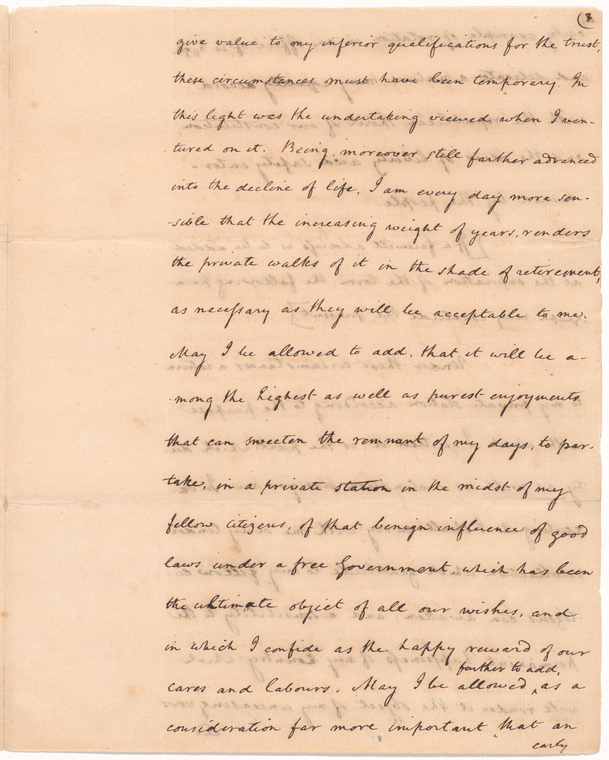 3
give value to my inferior qualifications for the trust,
these circumstances must have been temporary. In
this light was the undertaking viewed when I ven-
tured on it. Being moreover still farther advanced
into the decline of life, I am every day more sen-
sible that the increasing weight of years, renders
the private walks of it in the shade of retirement,
as necessary as they will be acceptable to me.
May I be allowed to add, that it will be a-
-mong the highest as well as purest enjoyments
that can sweeten the remnant of my days, to par-
take, in a private station in the midst of my
fellow citizens, of that benign influence of good
laws under a free Government, which has been
the ultimate object of all our wishes, and
in which I confide as the happy reward of our
further to add,
cares and labours. May I be allowed, as a
consideration far more important that an
early